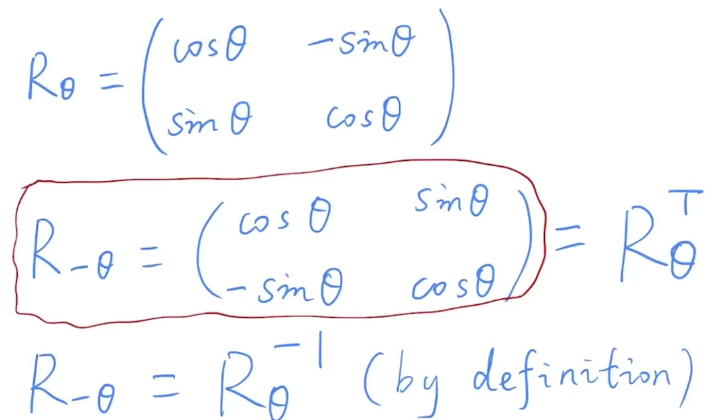 R_θ = ( cosθ   -sinθ
sinθ   cosθ )
R_{-θ} = ( cosθ   sinθ
-sinθ   cosθ ) = R_θ^T
R_{-θ} = R_θ^{-1} (by definition)